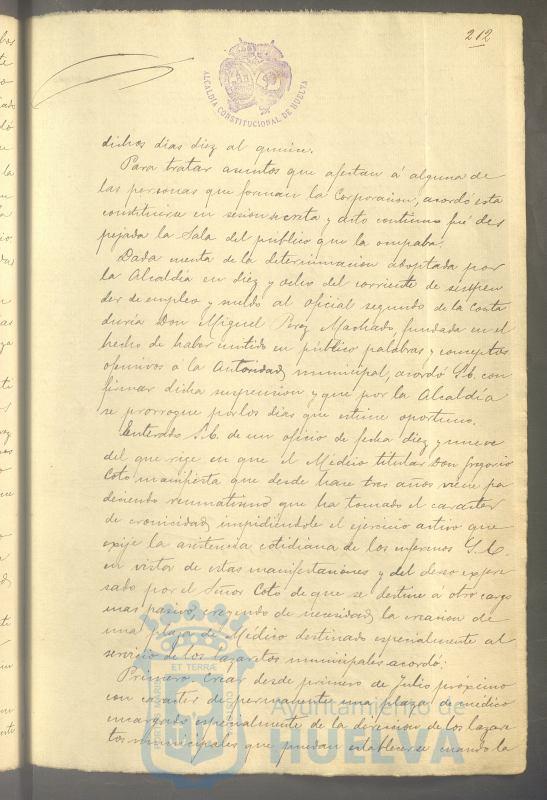 212
ALCALDÍA CONSTITUCIONAL DE HUELVA
dichos dias diez al quince.
Para tratar asuntos que afectan á alguna de
las personas que forman la Corporacion, acordó esta
constituirse en sesion secreta y acto continuo fué des
pejada la Sala del público que la ocupaba.
Dada cuenta de la determinacion adoptada por
la Alcaldía en diez y ocho del corriente de suspen
der de empleo y sueldo al oficial segundo de la Conta
duría Don Miguel Perez Machado, fundada en el
hecho de haber emitido en público palabras y conceptos
ofensivos á la Autoridad municipal, acordó S.C. con
firmar dicha suspension y que por la Alcaldía
se prorrogue por los dias que estime oportuno.
Enterado S.C. de un oficio de fecha diez y nueve
del que rige en que el Médico titular Don Gregorio
Coto manifiesta que desde hace tres años viene pa
deciendo reumatismo que ha tomado el caracter
de cronicidad impidiendole el ejercicio activo que
exije la asistencia cotidiana de los enfermos S.C.
en vista de estas manifestaciones y del deseo expre
sado por el Señor Coto de que se destine a otro cargo
mas pasivo, creyendo de necesidad la creacion de
una plaza de Médico destinado especialmente al
servicio de los lazaretos municipales acordó:
Primero. Crear desde primero de Julio próximo
con caracter de permanente una plaza de médico
encargado especialmente de la direccion de los lazare
tos municipales que puedan establecerse cuando la
ET TERRÆ
Ayuntamiento de
HUELVA